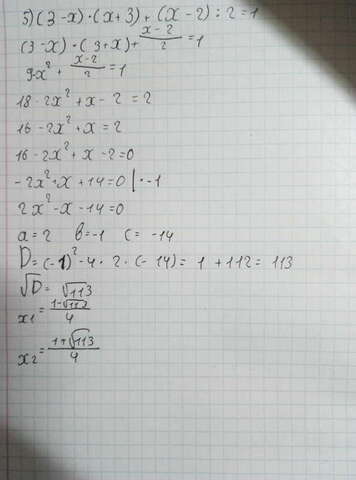 5) (3-x)·(x+3)+(x-2):2=1
(3-x)·(3+x)+\frac{x-2}{2}=1
9-x²+\frac{x-2}{2}=1
18-2x²+x-2=2
16-2x²+x=2
16-2x²+x-2=0
-2x²+x+14=0 |·-1
2x²-x-14=0
a=2 b=-1 c=-14
D=(-1)²-4·2·(-14)=1+112=113
√D=√113
x1=\frac{1-√113}{4}
x2=\frac{1+√113}{4}